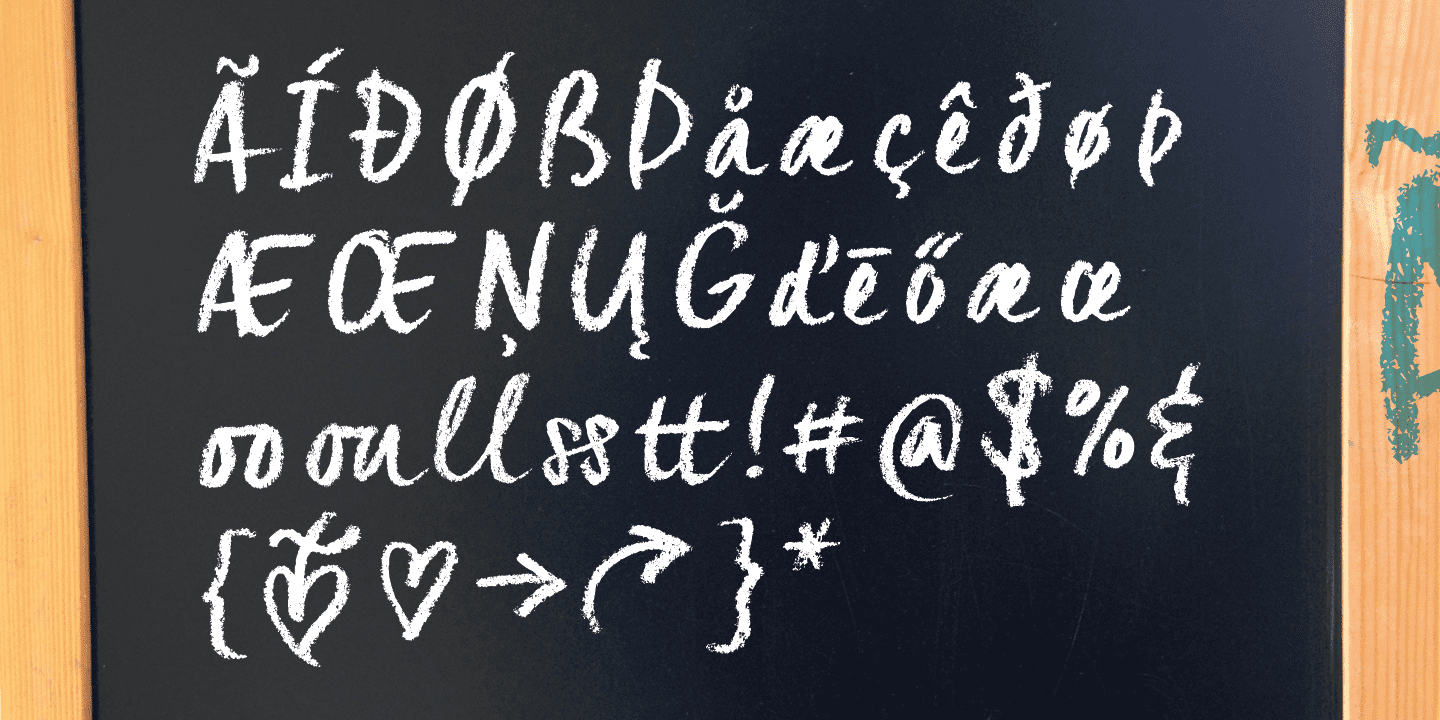 ÃÍÐØßÞåæçêðøþ
ÆŒŅŲĞďēőæœ
oooullsstt!#@$%&
{♡→}*